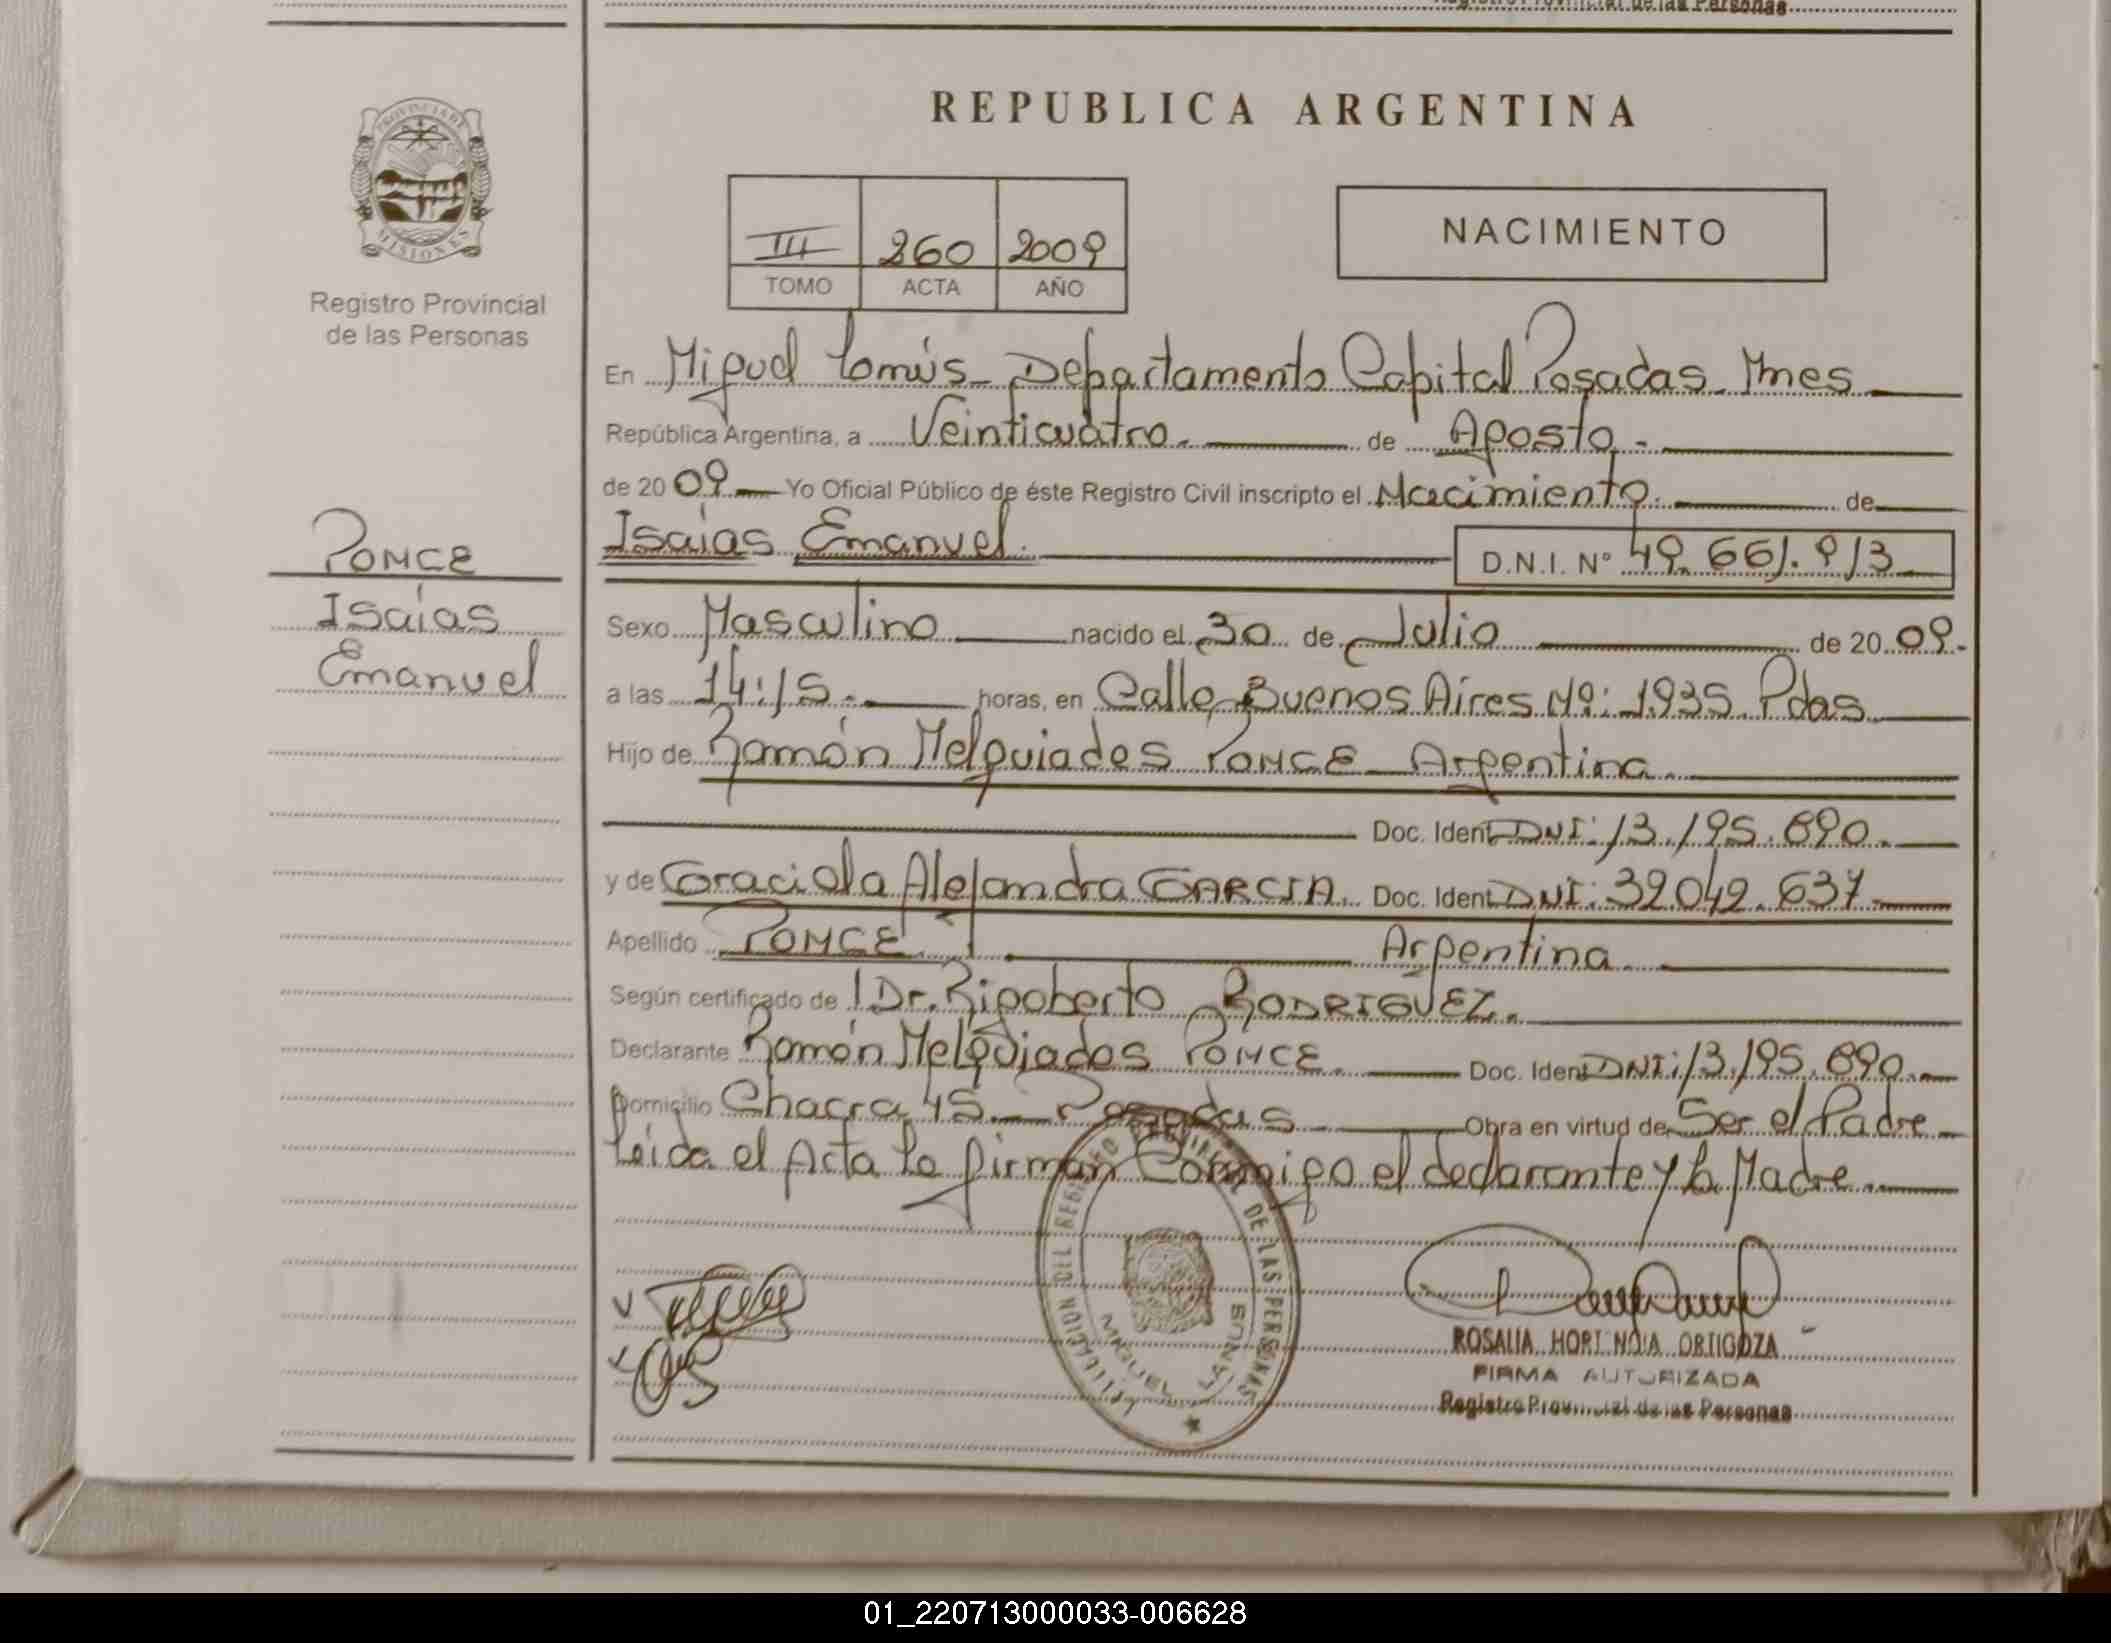 Registro Provincial de las Personas
REPUBLICA ARGENTINA
PROVINCIA DE
MISIONES
Registro Provincial
de las Personas
III 260 2009
TOMO ACTA AÑO
NACIMIENTO
En Miguel Lanús - Departamento Capital Posadas - Mnes
República Argentina, a Veinticuatro. de Agosto.-
de 2009 Yo Oficial Público de éste Registro Civil inscripto el Nacimiento. de
Isaías Emanuel. D.N.I. Nº 49.661.913
Sexo Masculino nacido el 30 de Julio de 2009.
a las 14:15.- horas, en Calle Buenos Aires Nº: 1935. Pdas
Hijo de Ramón Melquiades PONCE - Argentina.
Doc. Ident DNI: 13.195.890.
y de Graciela Alejandra GARCIA. Doc. Ident DNI: 32.042.637
Apellido PONCE Argentina
Según certificado de Dr. Rigoberto RODRIGUEZ.
Declarante Ramón Melquiades PONCE. Doc. Ident DNI: 13.195.890.
Domicilio Chacra 45. Posadas Obra en virtud de Ser el Padre
Leída el Acta la firman Conmigo el declarante y la Madre
PONCE
Isaías
Emanuel
DELEGACION DEL REGISTRO PROVINCIAL DE LAS PERSONAS
MIGUEL LANUS
ROSALIA HORTENCIA ORTIGOZA
FIRMA AUTORIZADA
Registro Provincial de las Personas
01_220713000033-006628